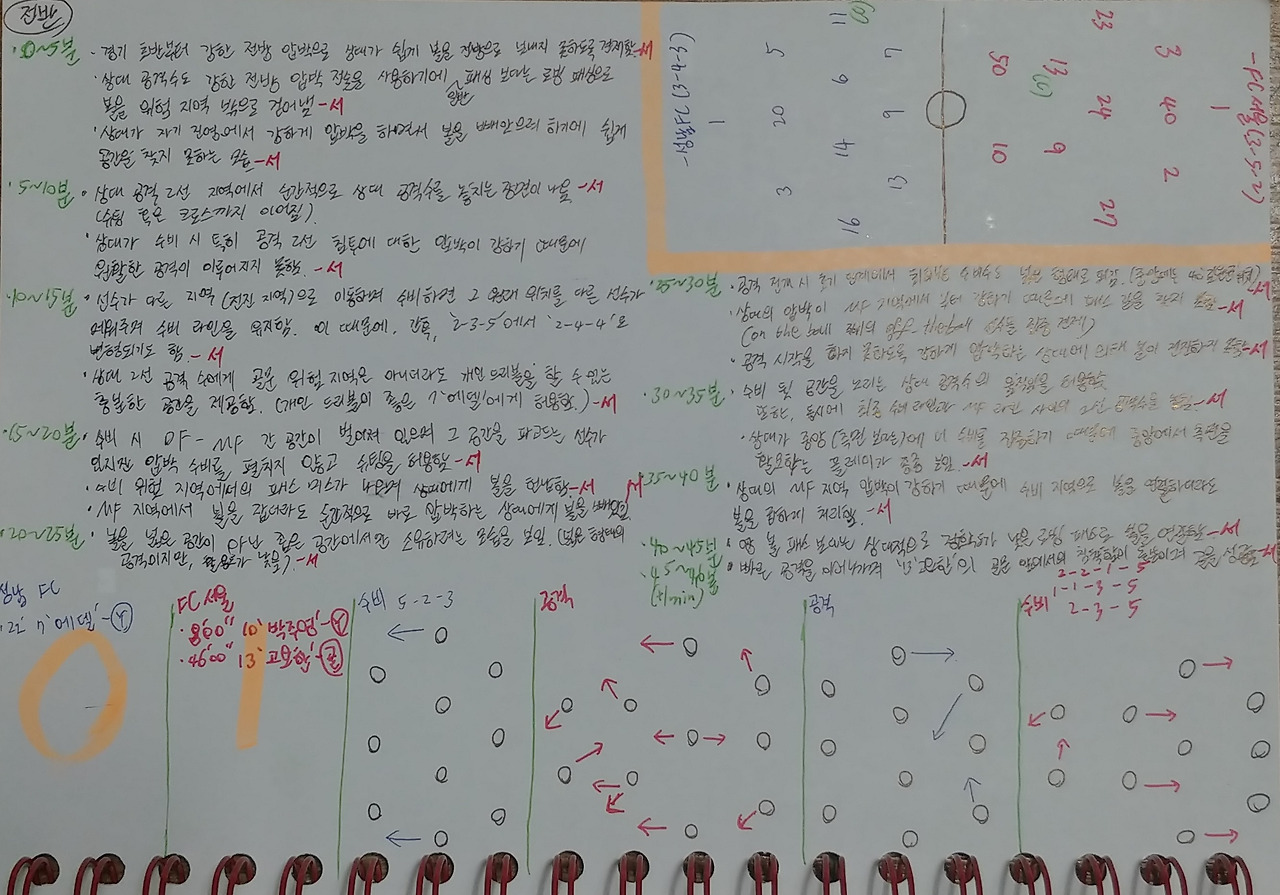 전반
0~5분 · 경기 초반부터 강한 전방 압박으로 상대가 쉽게 볼을 전방으로 보내지 못하도록 견제함.-서
· 상대 공격수도 강한 전방 압박 전술을 사용하기에 일반 패싱 보다는 로빙 패싱으로
볼을 위험 지역 밖으로 걷어냄-서
· 상대가 자기 진영에서 강하게 압박을 하면서 볼을 빼앗으려 하기에 쉽게
공간을 찾지 못하는 모습-서
·5~10분 · 상대 공격 2선 지역에서 순간적으로 상대 공격수를 놓치는 장면이 나옴-서
(슈팅 혹은 크로스까지 이어짐).
· 상대가 수비 시 특히 공격 2선 침투에 대한 압박이 강하기 때문에
원활한 공격이 이루어지지 못함.-서
·10~15분 · 선수가 다른 지역(전진 지역)으로 이동하며 수비하면 그 원래 위치를 다른 선수가
메워주며 수비 라인을 유지함. 이 때문에, 간혹, '2-3-5'에서 '2-4-4'로
변형되기도 함.-서
· 상대 2선 공격수에게 골문 위험 지역은 아니더라도 개인 드리블을 할 수 있는
충분한 공간을 제공함. (개인 드리블이 좋은 7'에델'에게 허용함.)-서
·15~20분 · 수비 시 DF-MF 간 공간이 벌어져 있으며 그 공간을 파고드는 선수가
있지만 압박 수비를 펼치지 않고 슈팅을 허용함-서
· 수비 위험 지역에서의 패스 미스가 나오며 상대에게 볼을 헌납함.-서
· MF 지역에서 볼을 잡더라도 순간적으로 바로 압박하는 상대에게 볼을 빼앗김.-서
·20~25분 · 볼을 넓은 공간이 아닌 좁은 공간에서만 소유하려는 모습을 보임. (넓은 형태의
공격이지만, 가 낮음).-서
-성남FC (3-4-3)
1
5 20 3
11 6 14 16
(C)
7 9 13
-FC서울(3-5-2)
1
3 40 2
23 24 27
13(C) 9
50 10
·25~30분 · 공격 전개 시 초기 단계에서 최후방 수비수도 넓은 형태로 퍼짐. -서
· 상대의 압박이 MF 지역에서부터 강하기 때문에 패스 길을 찾지 못함-서
(on the ball 제외 off-the ball 선수들 집중 견제)
· 공격 시작을 하지 못하도록 강하게 압박하는 상대에 의해 볼이 전진하지 못함-서
·30~35분 · 수비 뒷 공간을 노리는 상대 공격수의 움직임을 허용함.
또한, 동시에 최종 수비 라인과 MF 라인 사이의 2선 공격수를 놓침.-서
· 상대가 중앙(측면 보다는)에 더 수비를 집중하기 때문에 중앙에서 측면을
활용하는 플레이가 종종 보임.-서
·35~40분 · 상대의 MF 지역 압박이 강하기 때문에 수비 지역으로 볼을 연결하더라도
볼을 급하게 처리함.-서
·40~45분 · 땅볼 패스 보다는 상대적으로 정확도가 낮은 로빙 패스로 볼을 연결함-서
·45~46분 · 빠른 공격을 이어나가며 '13'고요한'의 골문 앞에서의 침착함이 돋보이며 골을 성공함-서
(+1min)
성남 FC
·22' 7'에델'-Y
0
FC서울
·8'00" 10'박주영'-Y
·46'00" 13'고요한'-골
1
수비 5-2-3
공격
공격
수비
2-2-1-5
1-1-3-5
2-3-5